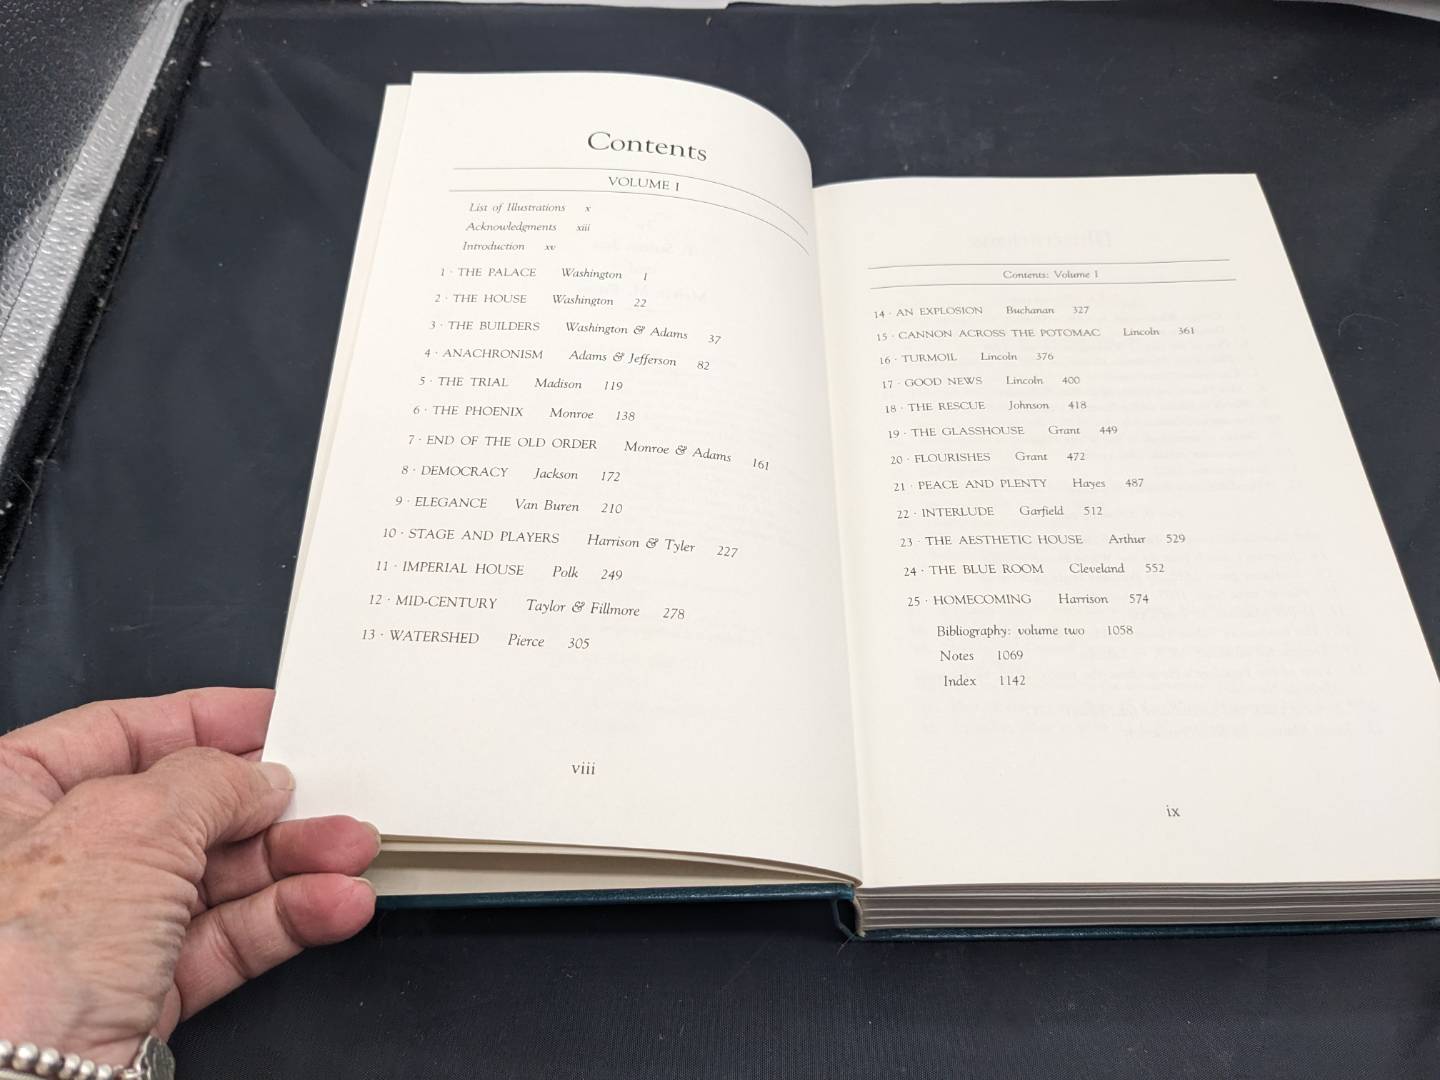 Contents
VOLUME I
List of Illustrations x
Acknowledgments xiii
Introduction xv
1 · THE PALACE Washington 1
2 · THE HOUSE Washington 22
3 · THE BUILDERS Washington & Adams 37
4 · ANACHRONISM Adams & Jefferson 82
5 · THE TRIAL Madison 119
6 · THE PHOENIX Monroe 138
7 · END OF THE OLD ORDER Monroe & Adams 161
8 · DEMOCRACY Jackson 172
9 · ELEGANCE Van Buren 210
10 · STAGE AND PLAYERS Harrison & Tyler 227
11 · IMPERIAL HOUSE Polk 249
12 · MID-CENTURY Taylor & Fillmore 278
13 · WATERSHED Pierce 305
viii
Contents: Volume I
14 · AN EXPLOSION Buchanan 327
15 · CANNON ACROSS THE POTOMAC Lincoln 361
16 · TURMOIL Lincoln 376
17 · GOOD NEWS Lincoln 400
18 · THE RESCUE Johnson 418
19 · THE GLASSHOUSE Grant 449
20 · FLOURISHES Grant 472
21 · PEACE AND PLENTY Hayes 487
22 · INTERLUDE Garfield 512
23 · THE AESTHETIC HOUSE Arthur 529
24 · THE BLUE ROOM Cleveland 552
25 · HOMECOMING Harrison 574
Bibliography: volume two 1058
Notes 1069
Index 1142
ix